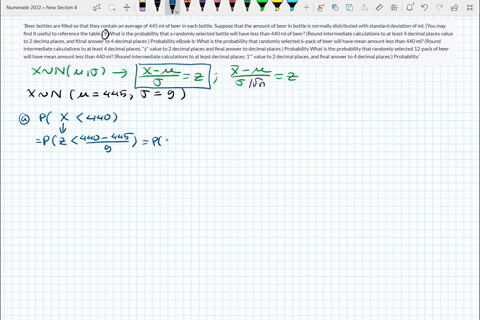 Numerade 2022 » New Section 4
'Beer bottles are filled so that they contain an average of 445 ml of beer in each bottle. Suppose that the amount of beer in bottle is normally distributed with standard deviation of ml. (You may
find it useful to reference the table ? What is the probability that a randomly selected bottle will have less than 440 ml of beer? (Round intermediate calculations to at least 4 decimal places value
to 2 decimal places, and fiinal answer to 4 decimal places.) Probability eBook b: What is the probability that randomly selected 6-pack of beer will have mean amount less than 440 ml? (Round
intermediate calculations to at least 4 decimal places, "z" value to 2 decimal places and final answer to decimal places ) Probability What is the probability that randomly selected 12-pack of beer
will have mean amount less than 440 ml? (Round intermediate calculations to at least decimal places; 1"" value to 2 decimal places, and final answer to 4 decimal places.) Probability'
X~N(μ,σ) → X-μ/σ = Z ; X̄-μ/σ/√n = Z
X~N (μ=445, σ=9)
a) P( X < 440)
= P( Z < 440-445/9 ) = P(